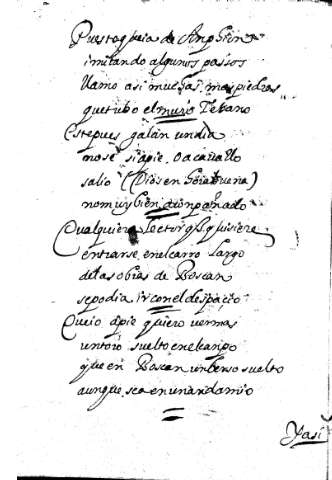 Puesto que ia de Anphion
imitando algunos passos
llamo asi muchas mas piedras
que tubo el muro Tebano
Este pues galan un dia
no se si a pie, o a cauallo
salio (Dios en hora buena)
no muy bien acompañado
Cualquiera lector q̃ quisiere
entrarse en el carro largo
de las obras de Boscan
se podia ir con el despacio
Que io a pie quiero ver mas
un toro suelto en el campo
que en Boscan un berso suelto
aunque sea en un andamio
Y asi